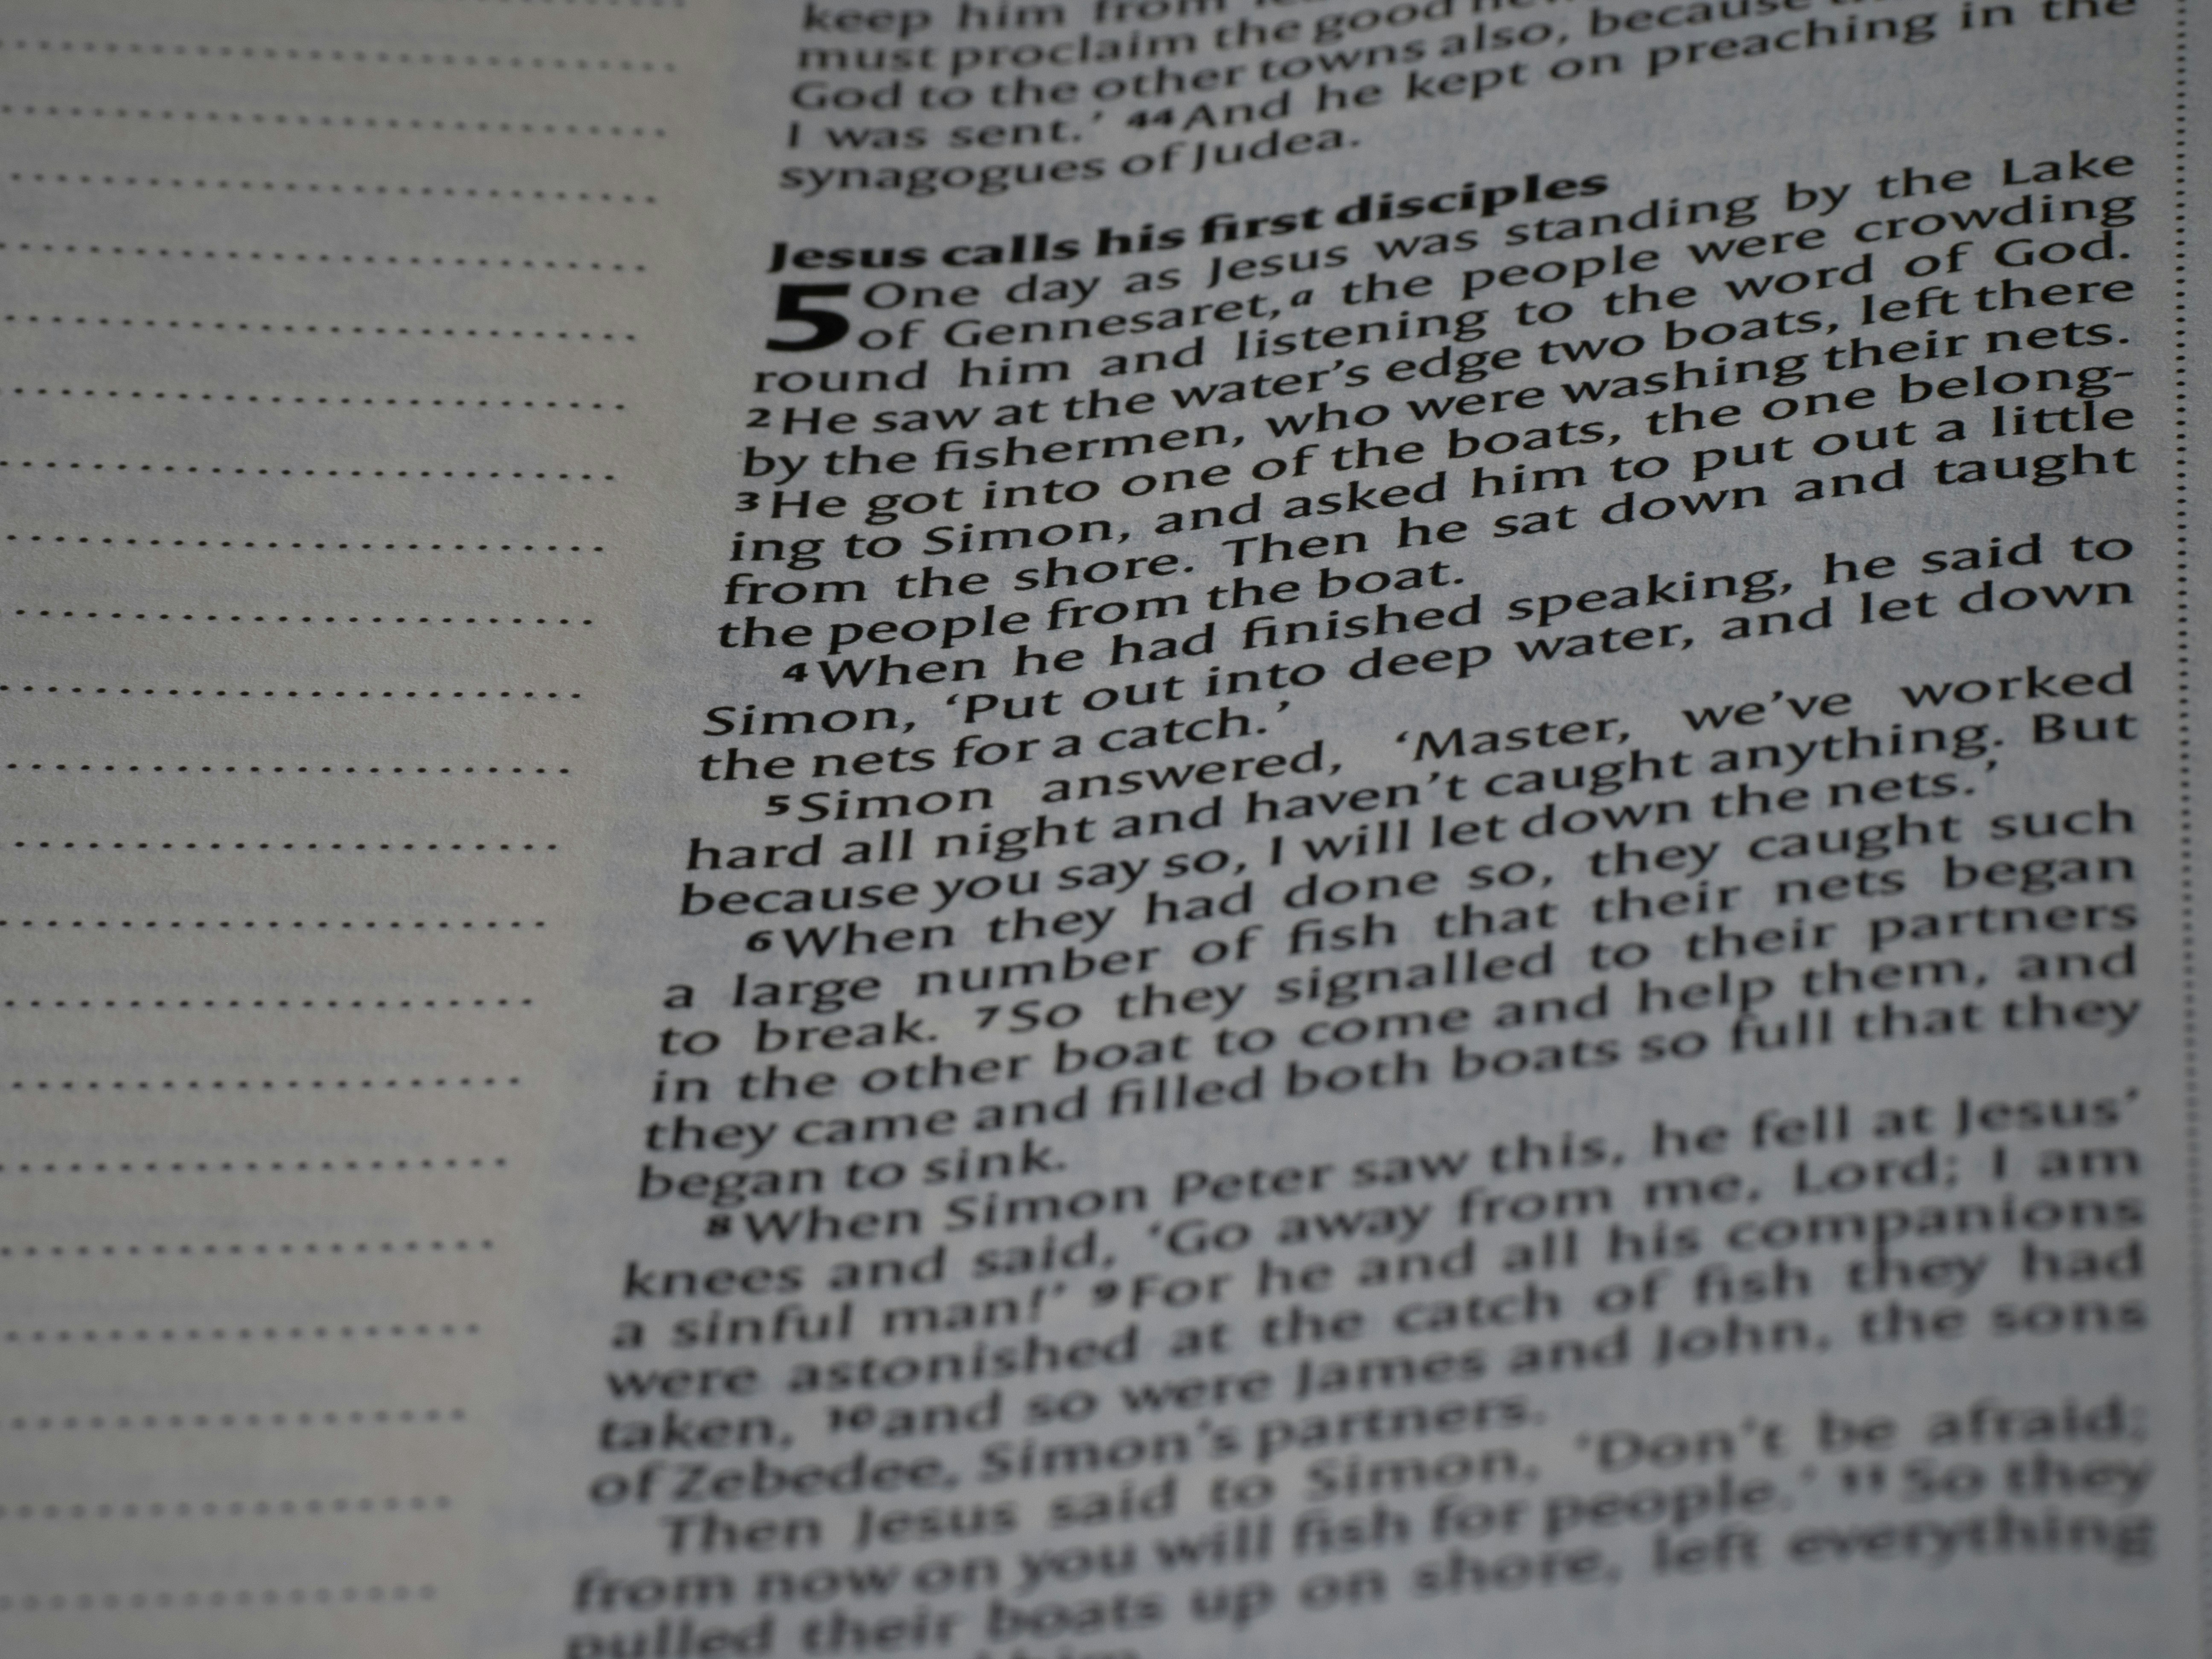 keep him from
must proclaim the good
God to the other towns also, because
I was sent.’ 44 And he kept on preaching in the
synagogues of Judea.
Jesus calls his first disciples
5 One day as Jesus was standing by the Lake
of Gennesaret,a the people were crowding
round him and listening to the word of God.
2 He saw at the water’s edge two boats, left there
by the fishermen, who were washing their nets.
3 He got into one of the boats, the one belong-
ing to Simon, and asked him to put out a little
from the shore. Then he sat down and taught
the people from the boat.
4 When he had finished speaking, he said to
Simon, ‘Put out into deep water, and let down
the nets for a catch.’
5 Simon answered, ‘Master, we’ve worked
hard all night and haven’t caught anything. But
because you say so, I will let down the nets.’
6 When they had done so, they caught such
a large number of fish that their nets began
to break. 7 So they signalled to their partners
in the other boat to come and help them, and
they came and filled both boats so full that they
began to sink.
8 When Simon Peter saw this, he fell at Jesus’
knees and said, ‘Go away from me, Lord; I am
a sinful man!’ 9 For he and all his companions
were astonished at the catch of fish they had
taken, 10 and so were James and John, the sons
of Zebedee, Simon’s partners.
Then Jesus said to Simon, ‘Don’t be afraid;
from now on you will fish for people.’ 11 So they
pulled their boats up on shore, left everything